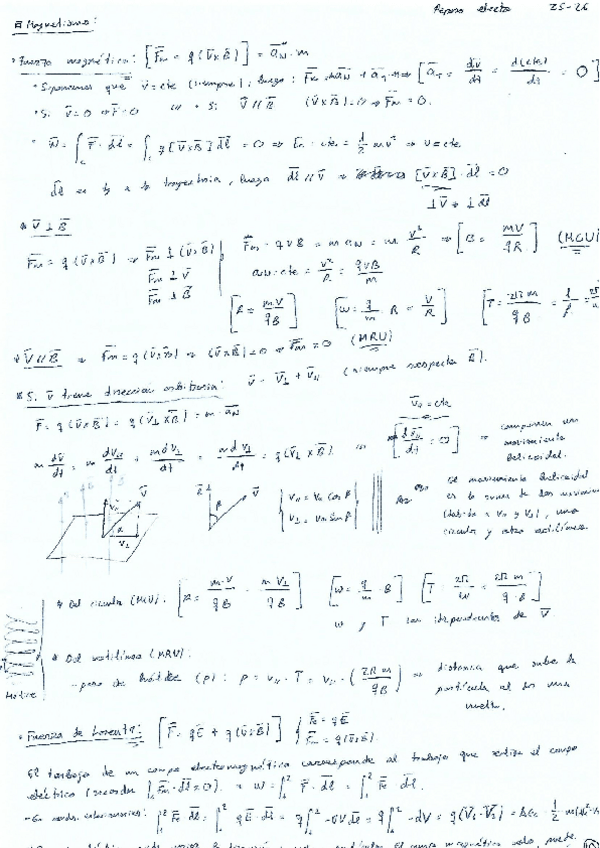 Repaso electro 25-26
Magnetismo:
• Fuerza magnética: [F̄m = q(v̄×B̄)] = ā_N · m
• Suponemos que v̄ = cte (siempre), luego: [ā_T = dv̄/dt = d(cte)/dt = 0]
• Si v̄ = 0 ⇒ F̄ = 0 • Si v̄ ∥ B̄ (v̄×B̄) = 0 ⇒ F̄m = 0.
• W = ∫_c F̄ · dl̄ = ∫_c q[v̄×B̄] dl̄ = 0 ⇒ Ec = cte = 1/2 mv² ⇒ v = cte.
dl̄ es tg a la trayectoria, luego dl̄ ∥ v̄ ⇒ [v̄×B̄] · dl̄ = 0
⊥v̄ ⇒ ⊥ dl̄
* v̄ ⊥ B̄
F̄m = q(v̄×B̄) ⇒ F̄m ⊥ (v̄×B̄) F̄m = qvB = m a_N = m v²/R ⇒ [B = mv/qR] (MCU)
F̄m ⊥ v̄
F̄m ⊥ B̄ a_N = cte = v²/R = qvB/m
[R = m·v/qB] [T = 2πm/qB
* v̄ ∥ B̄ ⇒ F̄m = q(v̄×B̄) ⇒ (v̄×B̄) = 0 ⇒ F̄m = 0 (MRU)
* Si v̄ tiene dirección arbitraria: v̄ = v̄⊥ + v̄∥ (siempre respecto B̄).
F̄ = q(v̄×B̄) = q(v̄⊥×B̄) = m·ā_N v̄∥ = cte
m dv̄/dt = m dv∥/dt + m dv⊥/dt = m dv⊥/dt = q(v⊥×B̄) ⇒ [dv̄∥/dt = 0] ⇒ componen un
movimiento
helicoidal.
El movimiento helicoidal
es la suma de los movimientos
(debido a v∥ y v⊥), uno
circular y otro rectilíneo.
* Del circular (MCU). [R = m·v/qB = m v⊥/qB] [ω = q/m · B] [T = 2π/ω = 2πm/q·B]
ω, T son independientes de v̄.
Hélice
* Del rectilíneo (MRU).
- paso de hélice (p): p = v∥ · T = v∥ · (2πm/qB) ⇒ distancia que sube la
partícula al dar una
vuelta.
• Fuerza de Lorentz: [F̄ = qĒ + q(v̄×B̄)] { F̄e = qĒ
F̄m = q(v̄×B̄).
El trabajo de un campo electromagnético corresponde al trabajo que realiza el campo
eléctrico (recordar ∫ F̄m · dl̄ = 0). ⇒ W = ∫₁² F̄ · dl̄ = ∫₁² F̄e dl̄.
∫₁² F̄e dl̄ = ∫₁² qĒ · dl̄ = q∫₁² -∇V dl̄ = q∫₁² -dV = q(V₁-V₂)